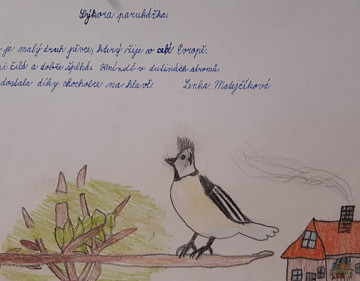 Sýkora parukářka.
je malý druh pěvce, který žije v celé Evropě.
čilá a dobře šplhá. Hnízdí v dutinách stromů.
dostala díky chocholce na hlavě. Lenka Matějčíková